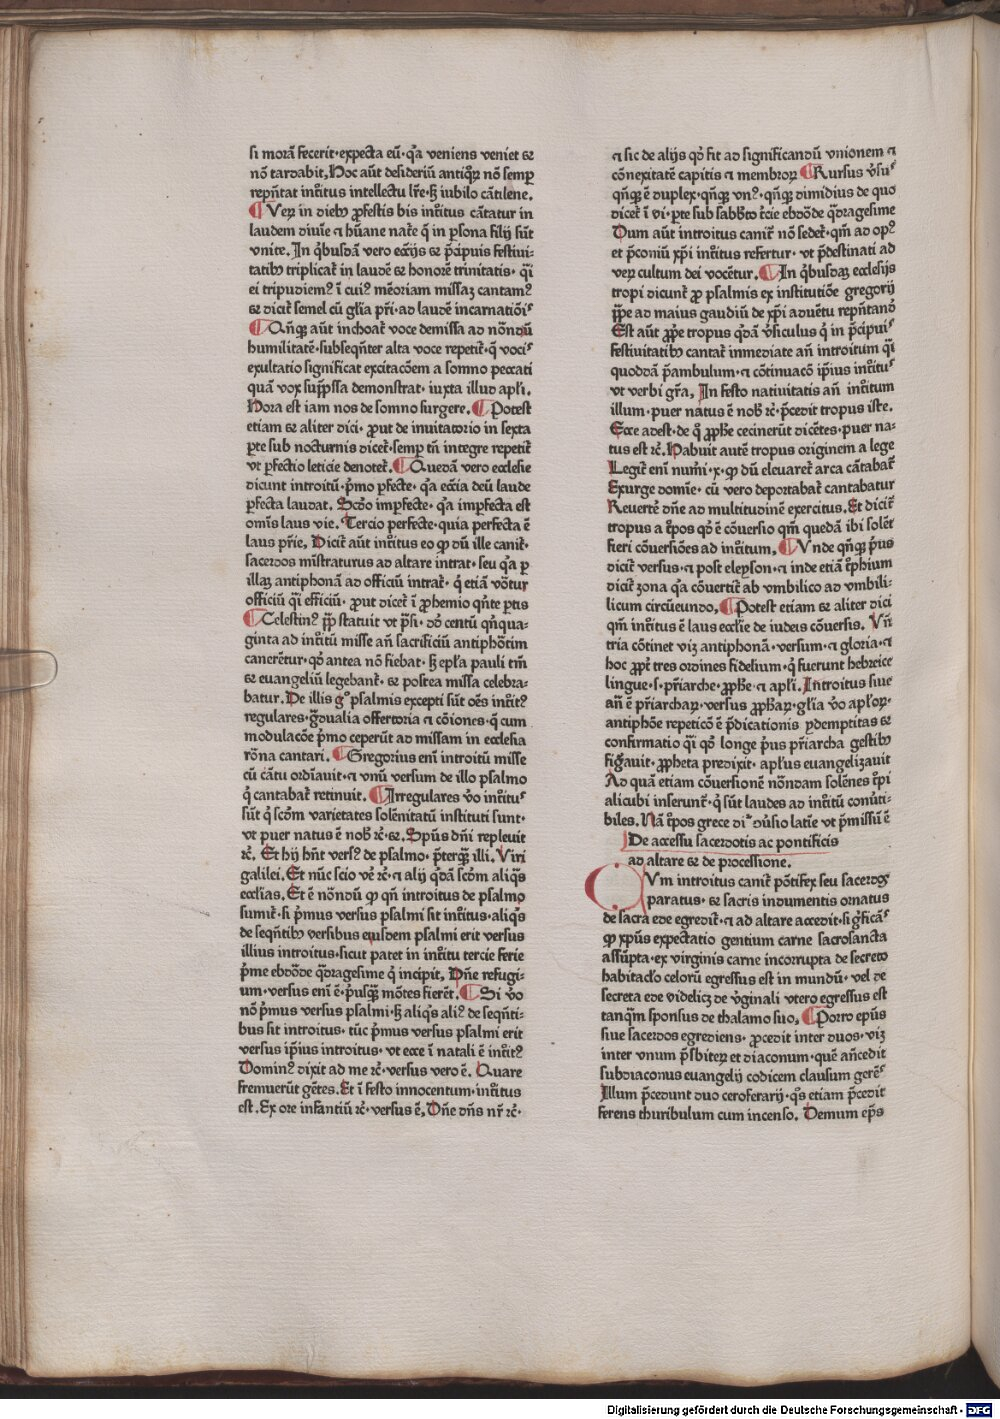 si morā fecerit·expecta eū·q̄a veniens veniet ⁊
nō tardabit,Hoc aūt desideriū antiqꝝ nō semꝑ
repn̄tat intͥtus intellectu lr̄e·ꝫ iubilo cātilene.
¶ Veꝝ in dieb⁹ ꝓfestis bis intͥtus cātatur in
laudem diuīe ⁊ hūane nat̄e q̄ in ꝑsona filij sūt
vnite. In q̄busdā vero eccl̄ijs ⁊ p̄cipuis festiui-
tatib⁹ triplicat᷑ in laudē ⁊ honorē trinitatis· q̄i
ei tripudiem⁹ ī cui⁹ mēoriam missaꝫ cantam⁹
⁊ dicit᷑ semel cū glīa pr̄i·ad laudē incarnatiōis
¶ Qn̄qꝫ aūt inchoat᷑ voce demissa ad nōndū
humilitatē·subseqn̄ter alta voce repetit᷑·q̄ vocis
exultatio significat excitacōem a somno peccati
quā vox sup̄ssa demonstrat· iuxta illud apl̄i.
Hora est iam nos de somno surgere. ¶ Potest
etiam ⁊ aliter dici· ꝓut de inuitatorio in sexta
ꝑte sub nocturnis dicet᷑·semꝑ tn̄ integre repetit᷑
vt ꝑfectio leticie denotet᷑. ¶ Quedā vero ecclesie
dicunt introitū·p̄mo ꝑfecte· q̄a eccl̄ia deū laude
ꝑfecta laudat. Scd̄o imꝑfecte· q̄a imꝑfecta est
omīs laus vie. Tercio perfecte·quia perfecta ē
laus pr̄ie, Dicit᷑ aūt intͥtus eo ꝙ dū ille canit᷑·
sacerdos mīstraturus ad altare intrat· seu q̄a ꝑ
illaꝫ antiphonā ad officiū intrat᷑· q̄ etiā vōtur
officiū q̄i efficiū· ꝓut dicet᷑ ī ꝓhemio qn̄te ꝑtis
¶ Celestin⁹ pp̄ statuit vt p̄si· dō centū qn̄qua-
ginta ad intͥtū misse an̄ sacrificiū antiphōtim
canerētur·qd̄ antea nō fiebat·ꝫ epl̄a pauli tm̄
⁊ euangeliū legebant᷑·⁊ postea missa celebra-
batur. De illis gͦ psalmis excepti sūt oēs intͥti⁹
regulares·gͣdualia offertoria ⁊ cōiones·q̄ cum
modulacōe p̄mo ceperūt ad missam in ecclesia
rōna cantari. ¶ Gregorius eni introitū misse
cū cātu ordīauit·⁊ vnū versum de illo psalmo
q̄ cantabat᷑ retinuit. ¶ Irregulares v̄o intͥtus
sūt q̄ scd̄m varietates solēnitatū instituti sunt·
vt puer natus ē nob̄ ⁊c̄·⁊. Spūs dn̄i repleuit
⁊c̄. Et hij hn̄t vers⁹ de psalmo· p̄terqͣꝫ illi. Viri
galilei. Et nūc scio ve᷑ ⁊c̄·⁊ alij q̄dā scd̄m aliq̄s
eccl̄ias. Et ē nōndū ꝙ qn̄ introitus de psalmo
sumit᷑·si p̄mus versus psalmi sit intͥtus·aliq̄s
de seqn̄tib⁹ versibus eiusdem psalmi erit versus
illius introitus·sicut patet in intͥtu tercie ferie
p̄me ebdōde q̄dragesime q̄ incipit, Dn̄e refugi-
um·versus eni ē·p̄usqͣꝫ mōtes fierēt. ¶ Si v̄o
nō p̄mus versus psalmi·ꝫ aliq̄s ali⁹ de seqn̄ti-
bus sit introitus· tūc p̄mus versus psalmi erit
versus ip̄ius introitus· vt ecce ī natali ē intͥt⁹
Domin⁹ dixit ad me ⁊c̄·versus vero ē. Quare
fremuerūt gētes. Et ī festo innocentum·intͥtus
est. Ex ore infantiū ⁊c̄·versus ē, Dn̄e dn̄s nr̄ ⁊c̄·
⁊ sic de alijs qd̄ fit ad significandū vnionem ⁊
cōnexitatē capitis ⁊ membroꝝ ¶ Rursus v̄sus
qn̄qꝫ ē duplex·qn̄qꝫ vn⁹·qn̄qꝫ dimidius de quo
dicet᷑ ī vi·ꝑte sub sabb̄to t᷑cie ebdōde q̄dragesime
Dum aūt introitus canit᷑ nō sedet᷑·qm̄ ad op⁹
et p̄coniū xp̄i intͥtus refertur· vt p̄destinati ad
veꝝ cultum dei vocētur. ¶ In q̄busdaꝫ ecclesijs
tropi dicunt᷑ ꝓ psalmis ex institutiōe gregorij
pp̄e ad maius gaudiū de xp̄i aduētu repn̄tandͦ
Est aūt ꝓp̄e tropus q̄dā v̄siculus q̄ in p̄cipuis
festiuitatib⁹ cantat᷑ inmediate an̄ introitum q̄i
quoddā p̄ambulum·⁊ cōtinuacō ip̄ius intͥtus
vt verbi gr̄a. In festo natiuitatis an̄ intͥtum
illum·puer natus ē nob̄ ⁊c̄·p̄cedit tropus iste.
Ecce adest·de q̄ ꝓph̄e cecinerūt dicētes·puer na-
tus est ⁊c̄. Habuit autē tropus originem a lege
Legit᷑ eni num̄i·x·ꝙ dū eleuaret᷑ arca cātabat᷑
Exurge domīe· cū vero deportabat᷑ cantabatur
Reuerte᷑ dn̄e ad multitudinē exercitus. Et dicit᷑
tropus a t᷑pos qd̄ ē cōuersio qm̄ quedā ibi solēt
fieri cōuersiōes ad intͥtum, ¶ Vnde qn̄qꝫ p̄us
dicit᷑ versus·⁊ post eleyson·⁊ inde etiā t᷑phium
dicit᷑ zona q̄a cōuertit᷑ ab vmbilico ad vmbili-
licum circūeundo, ¶ Potest etiam ⁊ aliter dici
qm̄ intͥtus ē laus eccl̄ie de iudeis cōuersis. Vn̄
tria cōtinet viꝫ antiphonā·versum·⁊ gloria·⁊
hoc ꝓpt᷑ tres ordines fidelium·q̄ fuerunt hebreice
lingue·s·pr̄iarche·ꝓph̄e·⁊ apl̄i. Introitus siue
an̄ ē pr̄iarchaꝝ·versus ꝓph̄aꝝ·gl̄ia v̄o apl̄oꝝ·
antiphōe repeticō ē p̄dicationis ydemptitas ⁊
confirmatio q̄i qd̄ longe p̄us pr̄iarcha gestib⁹
figͣuit·ꝓpheta predixit· apl̄us euangelizauit
Ad quā etiam cōuersionē nōndam solēnes t᷑pi
alicubi inserunt᷑·q̄ sūt laudes ad intͥtū conūti-
biles. Nā t᷑pos grece dr̄ ↄūsio latīe vt p̄missū ē
De accessu sacerdotis ac pontificis
ad altare ⁊ de processione.
CVm introitus canit᷑ pōtifex seu sacerdos
paratus· ⁊ sacris indumentis ornatus
de sacra ede egredit᷑·⁊ ad altare accedit·sigͥficās
ꝙ xp̄us expectatio gentium carne sacrosancta
assūpta·ex virginis carne incorrupta de secreto
habitacl̄o celorū egressus est in mundū· vel de
secreta ede videlicꝫ de v̄ginali vtero egressus est
tanqͣm sponsus de thalamo suo, ¶ Porro ep̄us
siue sacerdos egrediens· ꝓcedit inter duos·viꝫ
inter vnum p̄sbiteꝝ et diaconum·quē an̄cedit
subdiaconus euangelij codicem clausum gerēs
Illum p̄cedunt duo ceroferarij·q̄s etiam p̄cedit
ferens thuribulum cum incenso. Demum ep̄s
Digitalisierung gefördert durch die Deutsche Forschungsgemeinschaft - DFG